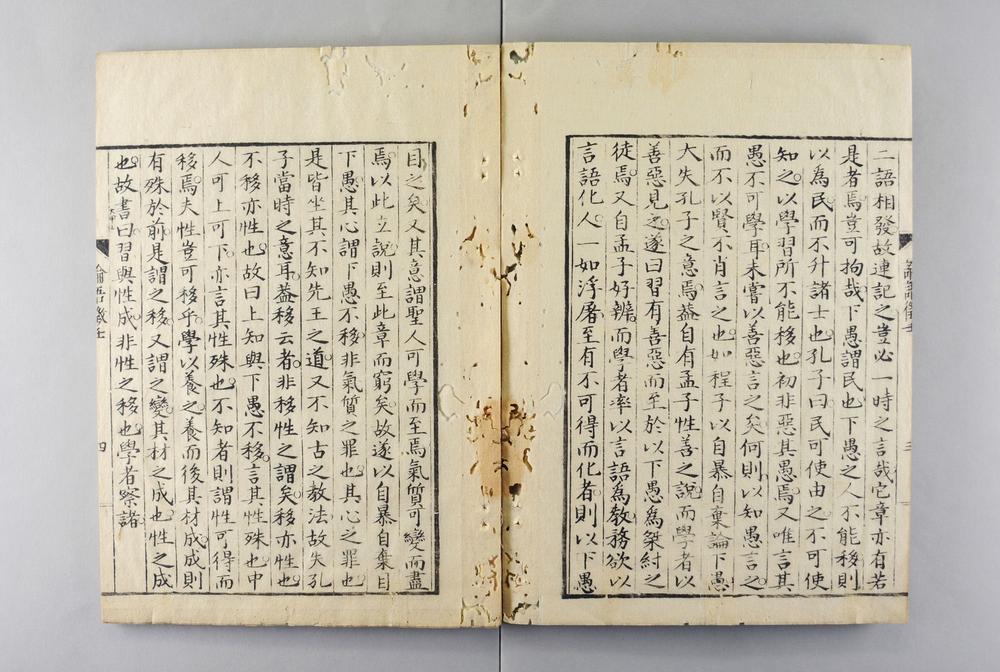 二語相發故連記之豈必一時之言哉它章亦有若
是者焉豈可拘哉下愚謂民也下愚之人不能移則
以為民而不升諸士也孔子曰民可使由之不可使
知之以學習所不能移也初非惡其愚焉又唯言其
愚不可學耳未嘗以善惡言之矣何則以知愚言之
而不以賢不肖言之也如程子以自暴自棄論下愚
大失孔子之意焉蓋自有孟子性善之說而學者以
善惡見之遂曰習有善惡而至於以下愚為桀紂之
徒焉又自孟子好辨而學者率以言語為教務欲以
言語化人一如浮屠至有不可得而化者則以下愚
目之矣又其意謂聖人可學而至焉氣質可變而盡
焉以此立說則至此章而窮矣故遂以自暴自棄目
下愚其心謂下愚不移非氣質之罪也其心之罪也
是皆坐其不知先王之道又不知古之教法故失孔
子當時之意耳蓋移云者非移性之謂矣移亦性也
不移亦性也故曰上知與下愚不移言其性殊也中
人可上可下亦言其性殊也不知者則謂性可得而
移焉夫性豈可移乎學以養之養而後其材成成則
有殊於前是謂之移又謂之變其材之成也性之成
也故書曰習與性成非性之移也學者察諸
論語徵壬
四